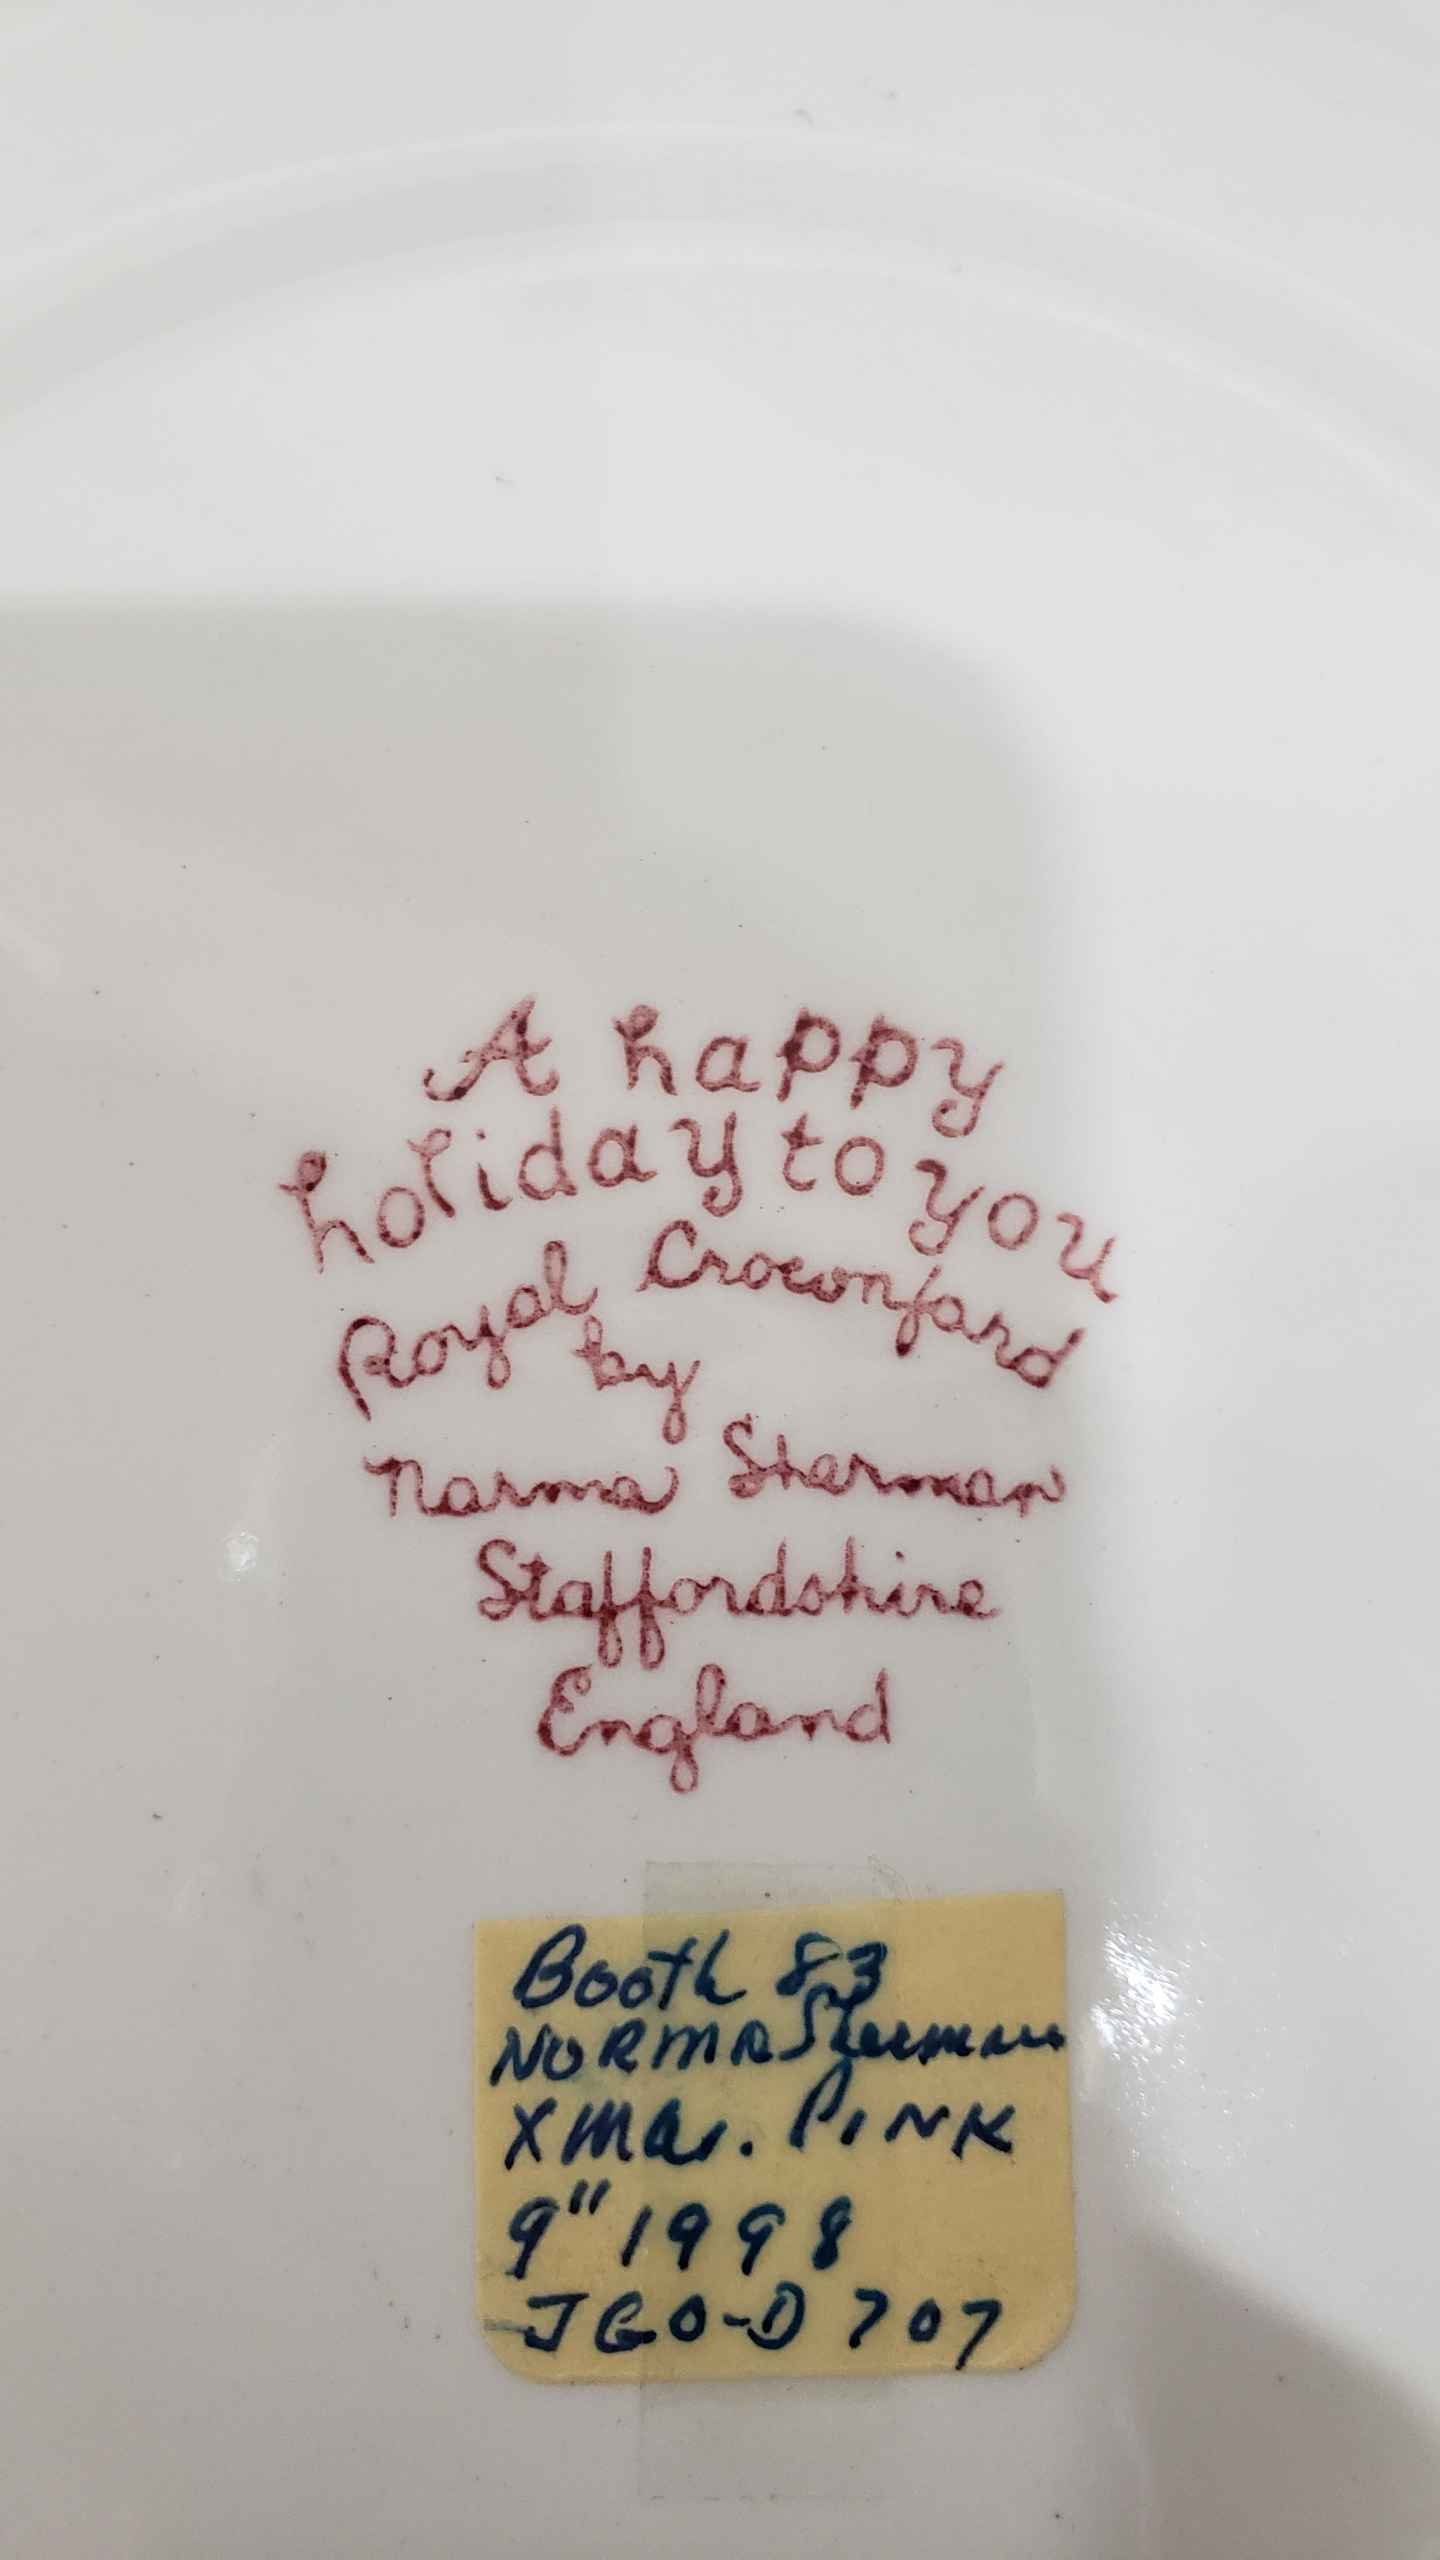 A happy
holiday to you
Royal Croconfard
by
Norma Sherman
Staffordshire
England
Booth 83
NORMA Sherman
Xmas. PINK
9" 1998
JGO-D 707